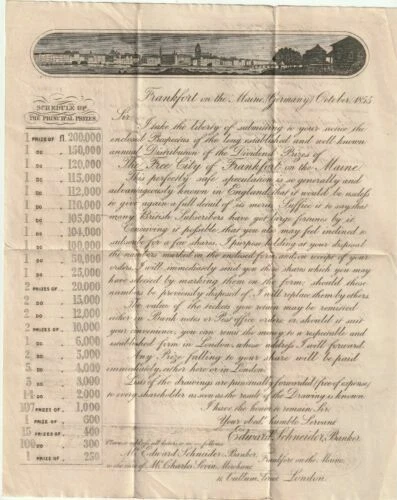 Frankfort on the Maine, Germany, October 1855
SCHEDULE OF
THE PRINCIPAL PRIZES.
1 PRIZE OF fl. 200,000
1 DO 150,000
1 DO 120,000
1 DO 115,000
1 DO 112,000
1 DO 110,000
1 DO 105,000
1 DO 104,000
1 DO 100,000
1 DO 50,000
1 DO 25,000
2 PRIZES OF 20,000
2 DO 15,000
2 DO 12,000
2 PRIZES OF 10,000
1 DO 6,000
2 DO 5,000
5 DO 4,000
3 DO 3,000
14 DO 2,000
107 PRIZES OF 1,000
1 PRIZE OF 600
15 PRIZES OF 400
100 DO 300
1 PRIZE OF 250
Sir
I take the liberty of submitting to your notice the
enclosed Prospectus of the long established and well known
annual Distribution of the Dividend Prizes of
The Free City of Frankfort on the Maine
This perfectly safe speculation is so generally and
advantageously known in England, that it would be useless
to give again a full detail of its merits. Suffice it to say that
many British Subscribers have got large fortunes by it.
Conceiving it possible, that you also may feel inclined to
subscribe for a few shares, I purpose holding at your disposal
the numbers marked on the enclosed form, and on receipt of your
order, I will immediately send you those shares which you may
have selected by marking them on the form; should these
numbers be previously disposed of, I will replace them by others.
The value of the tickets you return may be remitted
either in Bank notes or Post office orders, or should it suit
your convenience, you can remit the money to a respectable and
established firm in London, whose address I will forward.
Any Prize falling to your share will be paid
immediately, either here or in London.
Lists of the drawings are punctually forwarded (free of expense)
to every shareholder as soon as the result of the Drawing is known
I have the honor to remain Sir,
Your obdt. humble Servant
Edward Schneider, Banker.
Please address all letters as follows
Mr. Edward Schneider, Banker, Frankfort on the Maine,
to the care of Mr. Charles Levin, Merchant
11 Cullum Street London.